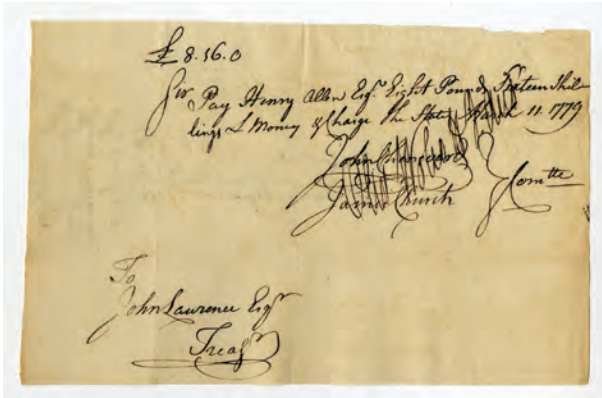 £ 8.16.0
Sir Pay Henry Allen Esqr. Eight Pounds Sixteen Shil-
lings L Money & Charge the State March 11. 1779
John Chenward
James Church } Comtte
To
John Lawrence Esqr
Treasr